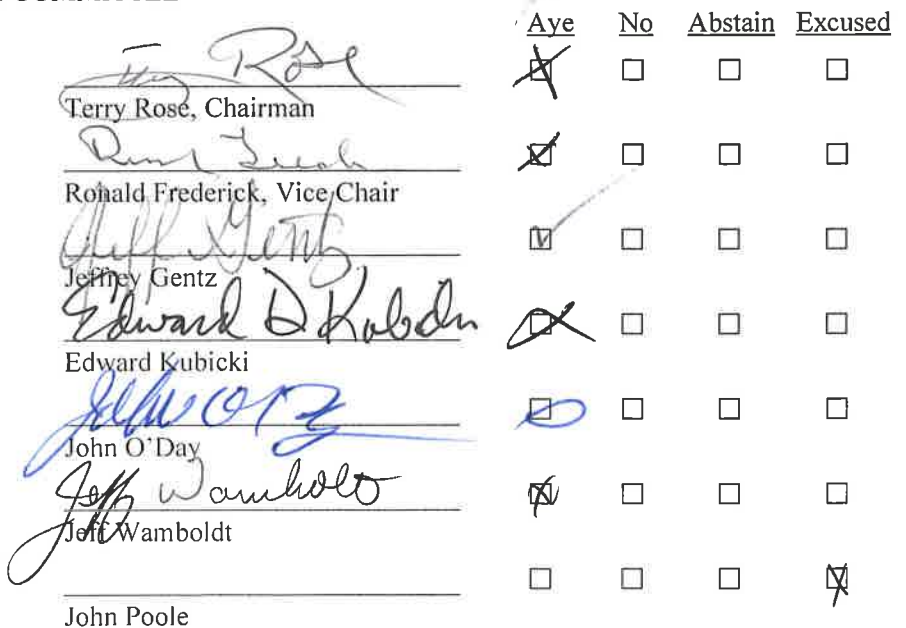 Aye No Abstain Excused
Terry Rose
Terry Rose, Chairman
Ronald Frederick, Vice Chair
Jeff Gentz
Jeffrey Gentz
Edward D Kubicki
Edward Kubicki
John O'Day
Jeff Wamboldt
Jeff Wamboldt
John Poole